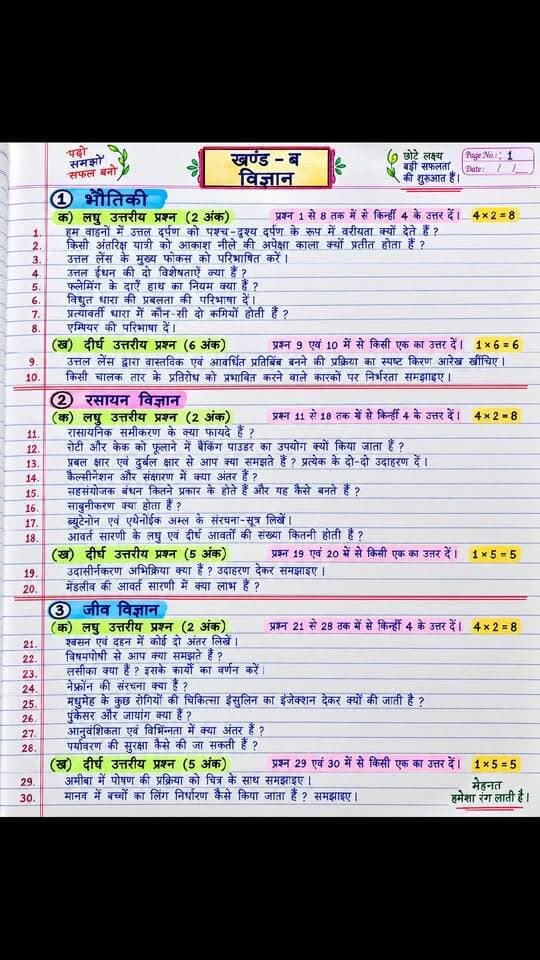 पढ़ो
समझो
सफल बनो
खण्ड - ब
विज्ञान
छोटे लक्ष्य
बड़ी सफलता
की शुरुआत हैं।
Page No.: 1
Date: / /
1 भौतिकी
क) लघु उत्तरीय प्रश्न (2 अंक) प्रश्न 1 से 8 तक में से किन्हीं 4 के उत्तर दें। 4×2=8
1. हम वाहनों में उत्तल दर्पण को पश्च-दृश्य दर्पण के रूप में वरीयता क्यों देते हैं ?
2. किसी अंतरिक्ष यात्री को आकाश नीले की अपेक्षा काला क्यों प्रतीत होता हैं ?
3. उत्तल लेंस के मुख्य फोकस को परिभाषित करें।
4. उत्तल ईंधन की दो विशेषताएँ क्या हैं ?
5. फ्लेमिंग के दाएँ हाथ का नियम क्या हैं ?
6. विद्युत धारा की प्रबलता की परिभाषा दें।
7. प्रत्यावर्ती धारा में कौन-सी दो कमियाँ होती हैं ?
8. एम्पियर की परिभाषा दें।
(ख) दीर्घ उत्तरीय प्रश्न (6 अंक) प्रश्न 9 एवं 10 में से किसी एक का उत्तर दें। 1×6=6
9. उत्तल लेंस द्वारा वास्तविक एवं आवर्धित प्रतिबिंब बनने की प्रक्रिया का स्पष्ट किरण आरेख खींचिए।
10. किसी चालक तार के प्रतिरोध को प्रभावित करने वाले कारकों पर निर्भरता समझाइए।
2 रसायन विज्ञान
(क) लघु उत्तरीय प्रश्न (2 अंक) प्रश्न 11 से 18 तक में से किन्हीं 4 के उत्तर दें। 4×2=8
11. रासायनिक समीकरण के क्या फायदे हैं ?
12. रोटी और केक को फूलाने में बैकिंग पाउडर का उपयोग क्यों किया जाता हैं ?
13. प्रबल क्षार एवं दुर्बल क्षार से आप क्या समझते हैं ? प्रत्येक के दो-दो उदाहरण दें।
14. कैल्सीनेशन और संक्षारण में क्या अंतर हैं ?
15. सहसंयोजक बंधन कितने प्रकार के होते हैं और यह कैसे बनते हैं ?
16. साबुनीकरण क्या होता हैं ?
17. ब्यूटेनोन एवं एथेनोईक अम्ल के संरचना-सूत्र लिखें।
18. आवर्त सारणी के लघु एवं दीर्घ आवर्तों की संख्या कितनी होती हैं ?
(ख) दीर्घ उत्तरीय प्रश्न (5 अंक) प्रश्न 19 एवं 20 में से किसी एक का उत्तर दें। 1×5=5
19. उदासीनकरण अभिक्रिया क्या हैं ? उदाहरण देकर समझाइए।
20. मेंडलीव की आवर्त सारणी में क्या लाभ हैं ?
3 जीव विज्ञान
(क) लघु उत्तरीय प्रश्न (2 अंक) प्रश्न 21 से 28 तक में से किन्हीं 4 के उत्तर दें। 4×2=8
21. श्वसन एवं दहन में कोई दो अंतर लिखें।
22. विषमपोषी से आप क्या समझते हैं ?
23. लसीका क्या हैं ? इसके कार्यों का वर्णन करें।
24. नेफ्रॉन की संरचना क्या हैं ?
25. मधुमेह के कुछ रोगियों की चिकित्सा इंसुलिन का इंजेक्शन देकर क्यों की जाती है ?
26. पुंकेसर और जायांग क्या हैं ?
27. आनुवंशिकता एवं विभिन्नता में क्या अंतर हैं ?
28. पर्यावरण की सुरक्षा कैसे की जा सकती हैं ?
(ख) दीर्घ उत्तरीय प्रश्न (5 अंक) प्रश्न 29 एवं 30 में से किसी एक का उत्तर दें। 1×5=5
29. अमीबा में पोषण की प्रक्रिया को चित्र के साथ समझाइए।
30. मानव में बच्चों का लिंग निर्धारण कैसे किया जाता हैं ? समझाइए।
मेहनत
हमेशा रंग लाती है।